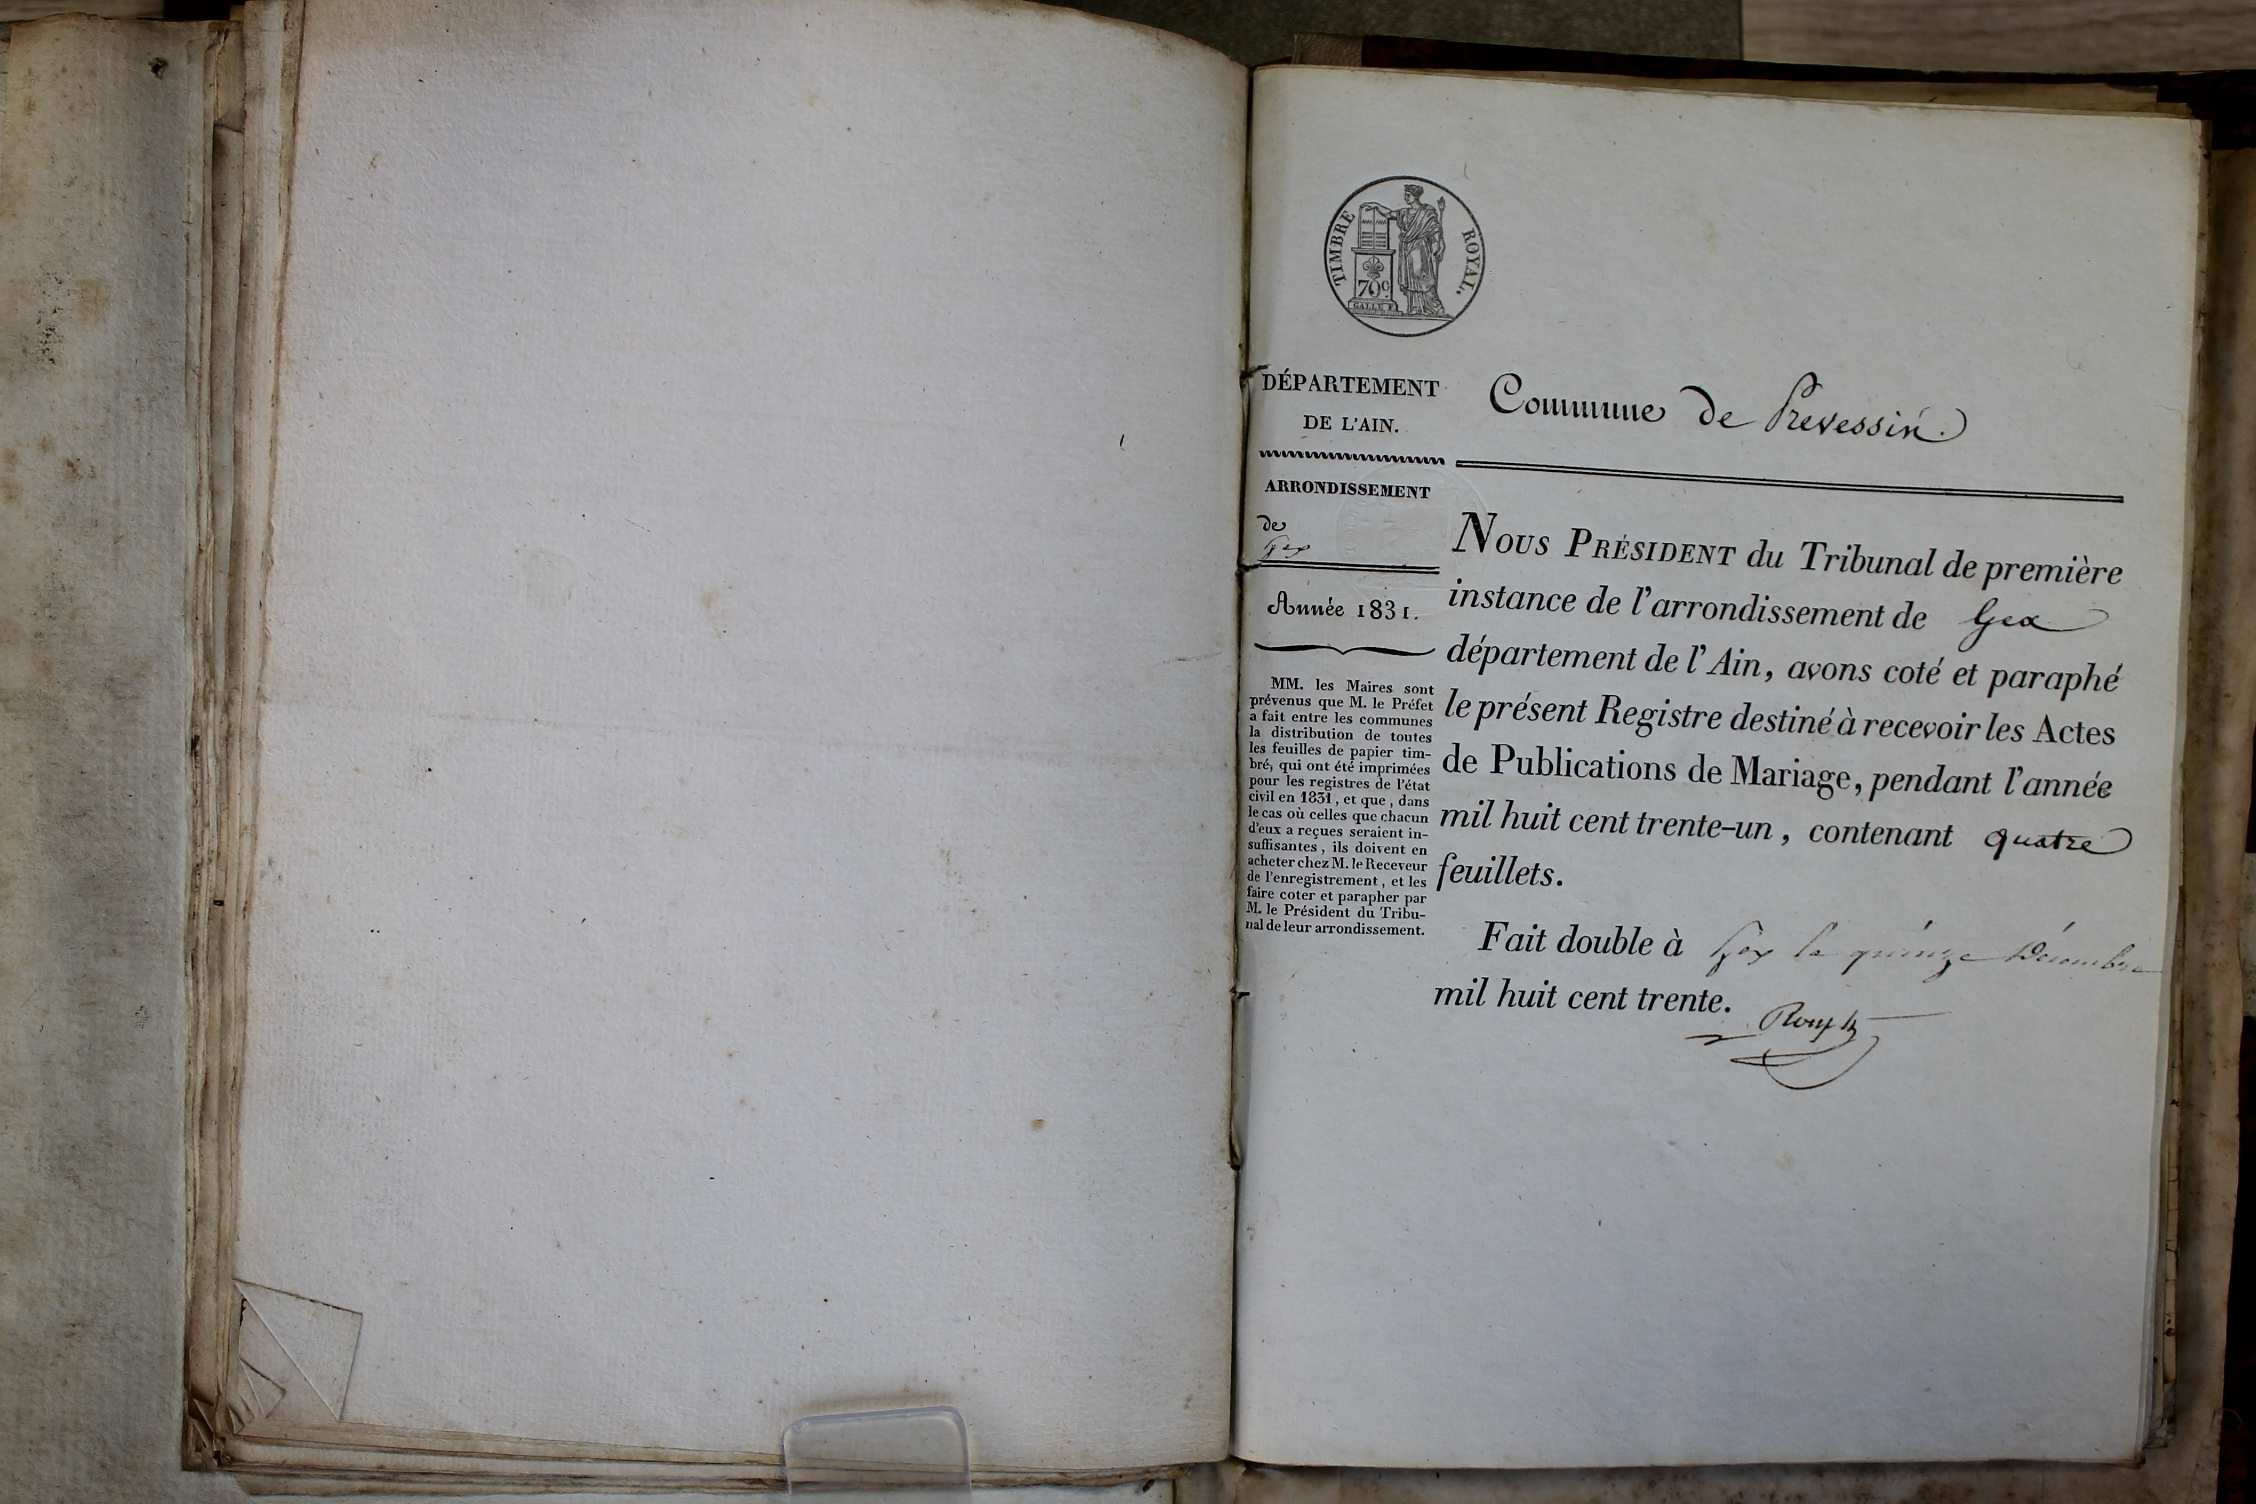 TIMBRE ROYAL.
70 c.
GALLE F.
DÉPARTEMENT
DE L'AIN.
ARRONDISSEMENT
de
Gex
Année 1831.
MM. les Maires sont
prévenus que M. le Préfet
a fait entre les communes
la distribution de toutes
les feuilles de papier tim-
bré, qui ont été imprimées
pour les registres de l'état
civil en 1831, et que, dans
le cas où celles que chacun
d'eux a reçues seraient in-
suffisantes, ils doivent en
acheter chez M. le Receveur
de l'enregistrement, et les
faire coter et parapher par
M. le Président du Tribu-
nal de leur arrondissement.
Commune de Prevessin.
NOUS PRÉSIDENT du Tribunal de première
instance de l'arrondissement de Gex
département de l'Ain, avons coté et paraphé
le présent Registre destiné à recevoir les Actes
de Publications de Mariage, pendant l'année
mil huit cent trente-un, contenant quatre
feuillets.
Fait double à Gex le quinze Décembre
mil huit cent trente.